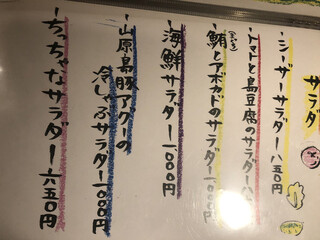 サラダ
シーザーサラダー 八五〇円
トマトと島豆腐のサラダー 八
(まぐろ)
鮪とアボカドのサラダー 一〇〇〇円
海鮮サラダー 一〇〇〇円
山原島豚アグーの
冷しゃぶサラダー 一〇〇〇円
ちっちゃなサラダー 六五〇円